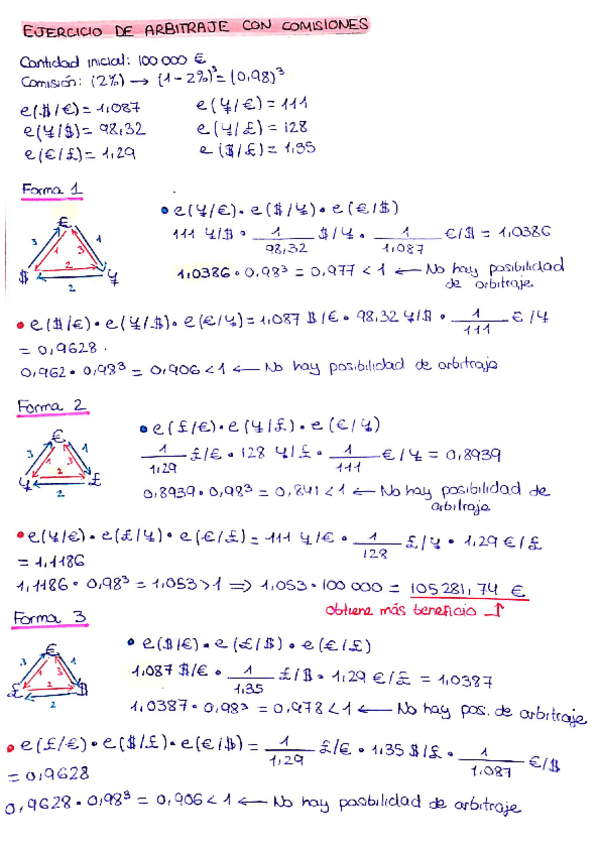 EJERCICIO DE ARBITRAJE CON COMISIONES
Cantidad inicial: 100 000 €
Comisión: (2%) → (1-2%)³ = (0,98)³
e($/€) = 1,087 e(¥/€) = 111
e(¥/$) = 98,32 e(¥/£) = 128
e(€/£) = 1,29 e($/£) = 1,35
Forma 1
€
3 1 3 1
2
$ ¥
2
• e(¥/€) • e($/¥) • e(€/$)
111 ¥/$ • 1/98,32 $/¥ • 1/1,087 €/$ = 1,0386
1,0386 • 0,98³ = 0,977 < 1 ← No hay posibilidad
de arbitraje.
• e($/€) • e(¥/$) • e(€/¥) = 1,087 $/€ • 98,32 ¥/$ • 1/111 €/¥
= 0,9628.
0,962 • 0,98³ = 0,906 < 1 ← No hay posibilidad de arbitraje
Forma 2
€
3 1 3 1
2
¥ £
2
• e(£/€) • e(¥/£) • e(€/¥)
1/1,29 £/€ • 128 ¥/£ • 1/111 €/¥ = 0,8939
0,8939 • 0,98³ = 0,841 < 1 ← No hay posibilidad de
arbitraje
• e(¥/€) • e(£/¥) • e(€/£) = 111 ¥/€ • 1/128 £/¥ • 1,29 €/£
= 1,1186
1,1186 • 0,98³ = 1,053 > 1 ⇒ 1,053 • 100 000 = 105 281,74 €
obtiene más beneficio ↑
Forma 3
€
3 1 3 1
2
£ $
2
• e($/€) • e(£/$) • e(€/£)
1,087 $/€ • 1/1,35 £/$ • 1,29 €/£ = 1,0387
1,0387 • 0,98³ = 0,978 < 1 ← No hay pos. de arbitraje
• e(£/€) • e($/£) • e(€/$) = 1/1,29 £/€ • 1,35 $/£ • 1/1,087 €/$
= 0,9628
0,9628 • 0,98³ = 0,906 < 1 ← No hay posibilidad de arbitraje